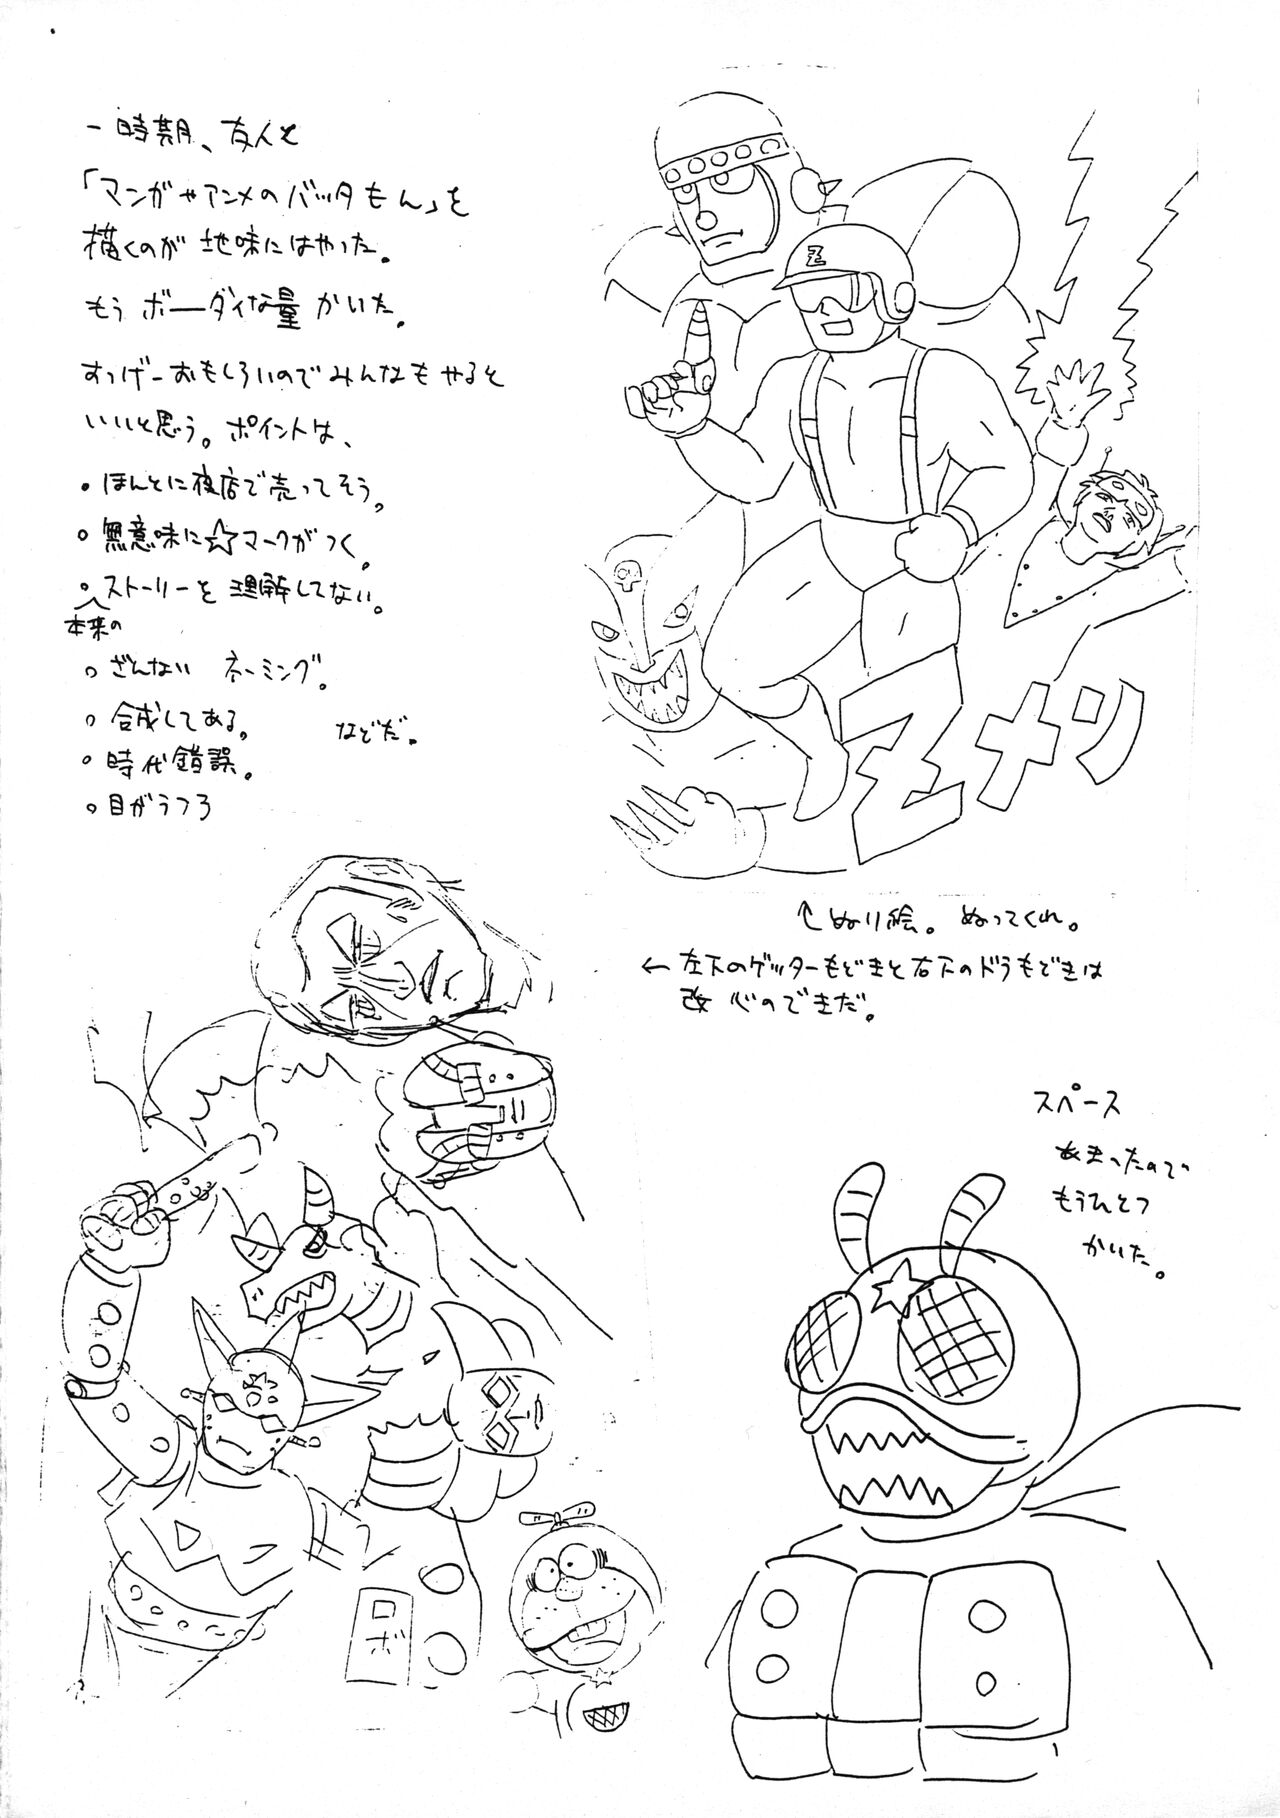 一時期、友人と
「マンガやアニメのバッタもん」を
描くのが地味にはやった。
もうボーダイな量かいた。
すっげーおもしろいのでみんなもやると
いいと思う。ポイントは、
・ほんとに夜店で売ってそう。
・無意味に☆マークがつく。
・ストーリーを理解してない。
本来の
・ざんない ネーミング。
・合成してある。 などだ。
・時代錯誤。
・目がうつろ
Z
Zメン
↑ぬり絵。ぬってくれ。
←左下のゲッターもどきと右下のドラもどきは
改心のできだ。
スペース
あまったので
もうひとつ
かいた。
ロボ